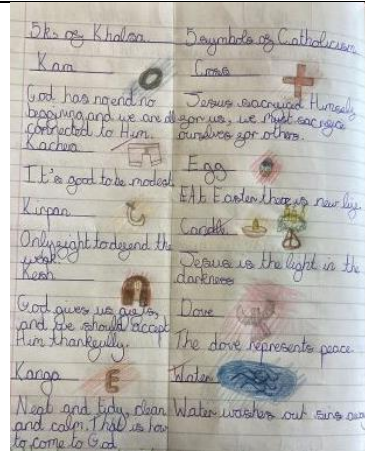 5Ks of Khalsa
Kara
God has no end no
beginning and we are all
connected to Him.
Kachera
It's good to be modest.
Kirpan
Only fight to defend the
weak.
Kesh
God gives us gifts,
and we should accept
Him thankfully.
Kanga
Neat and tidy, clean
and calm. That is how
to come to God.
5 symbols of Catholicism
Cross
Jesus sacrificed Himself
for us, we must sacrifice
ourselves for others.
Egg
At Easter there is new life.
Candle
Jesus is the light in the
darkness
Dove
The dove represents peace.
Water
Water washes out sins away